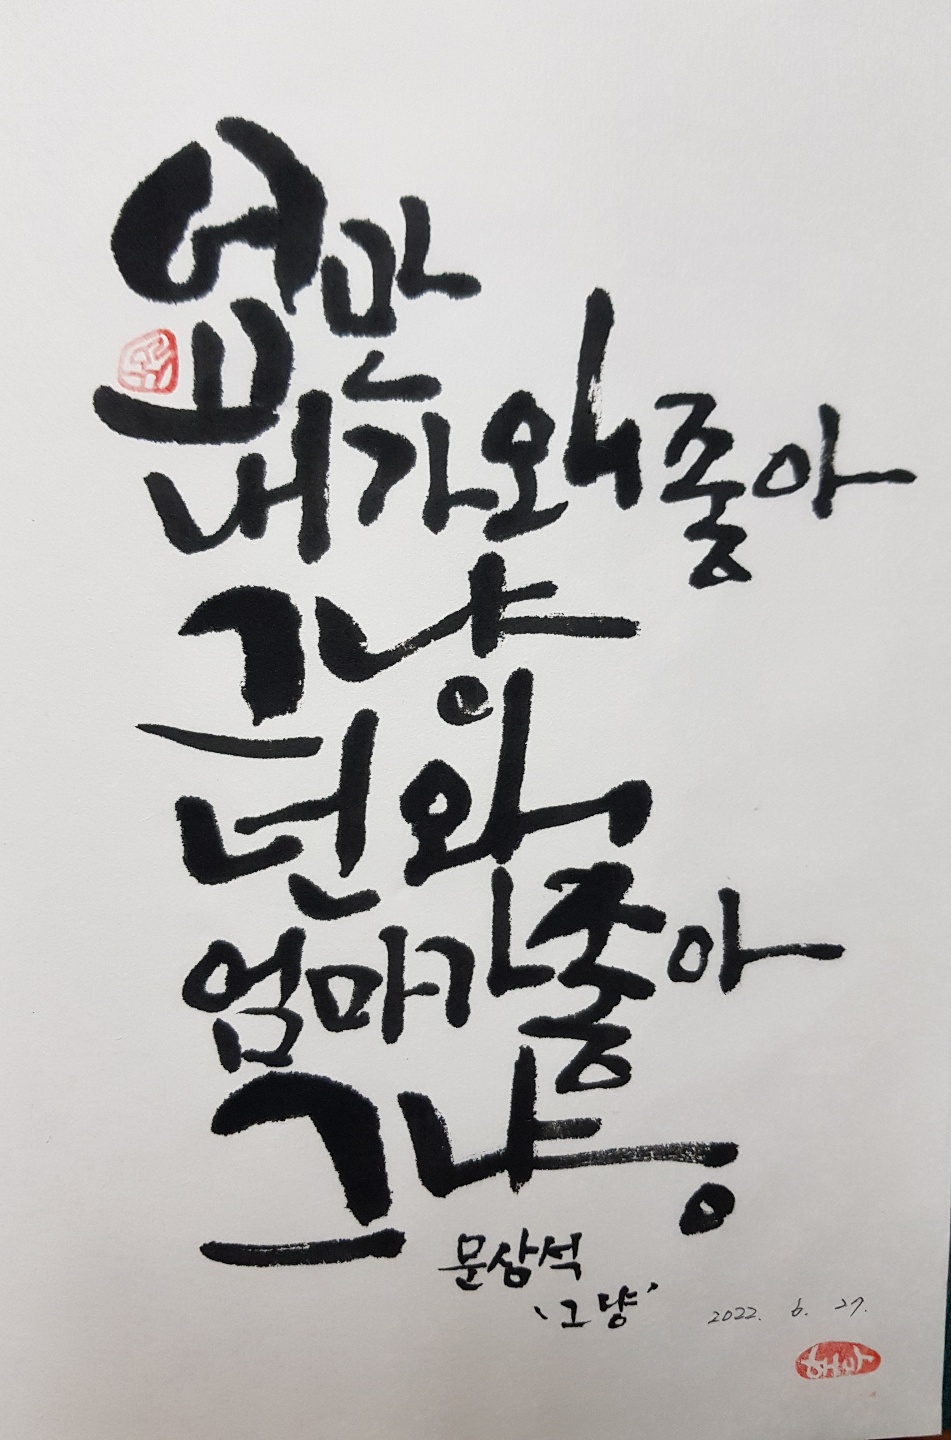 엄만
내가 왜 좋아
그냥
넌 왜
엄마가 좋아
그냥.
문삼석
'그냥'
2022. 6. 27.